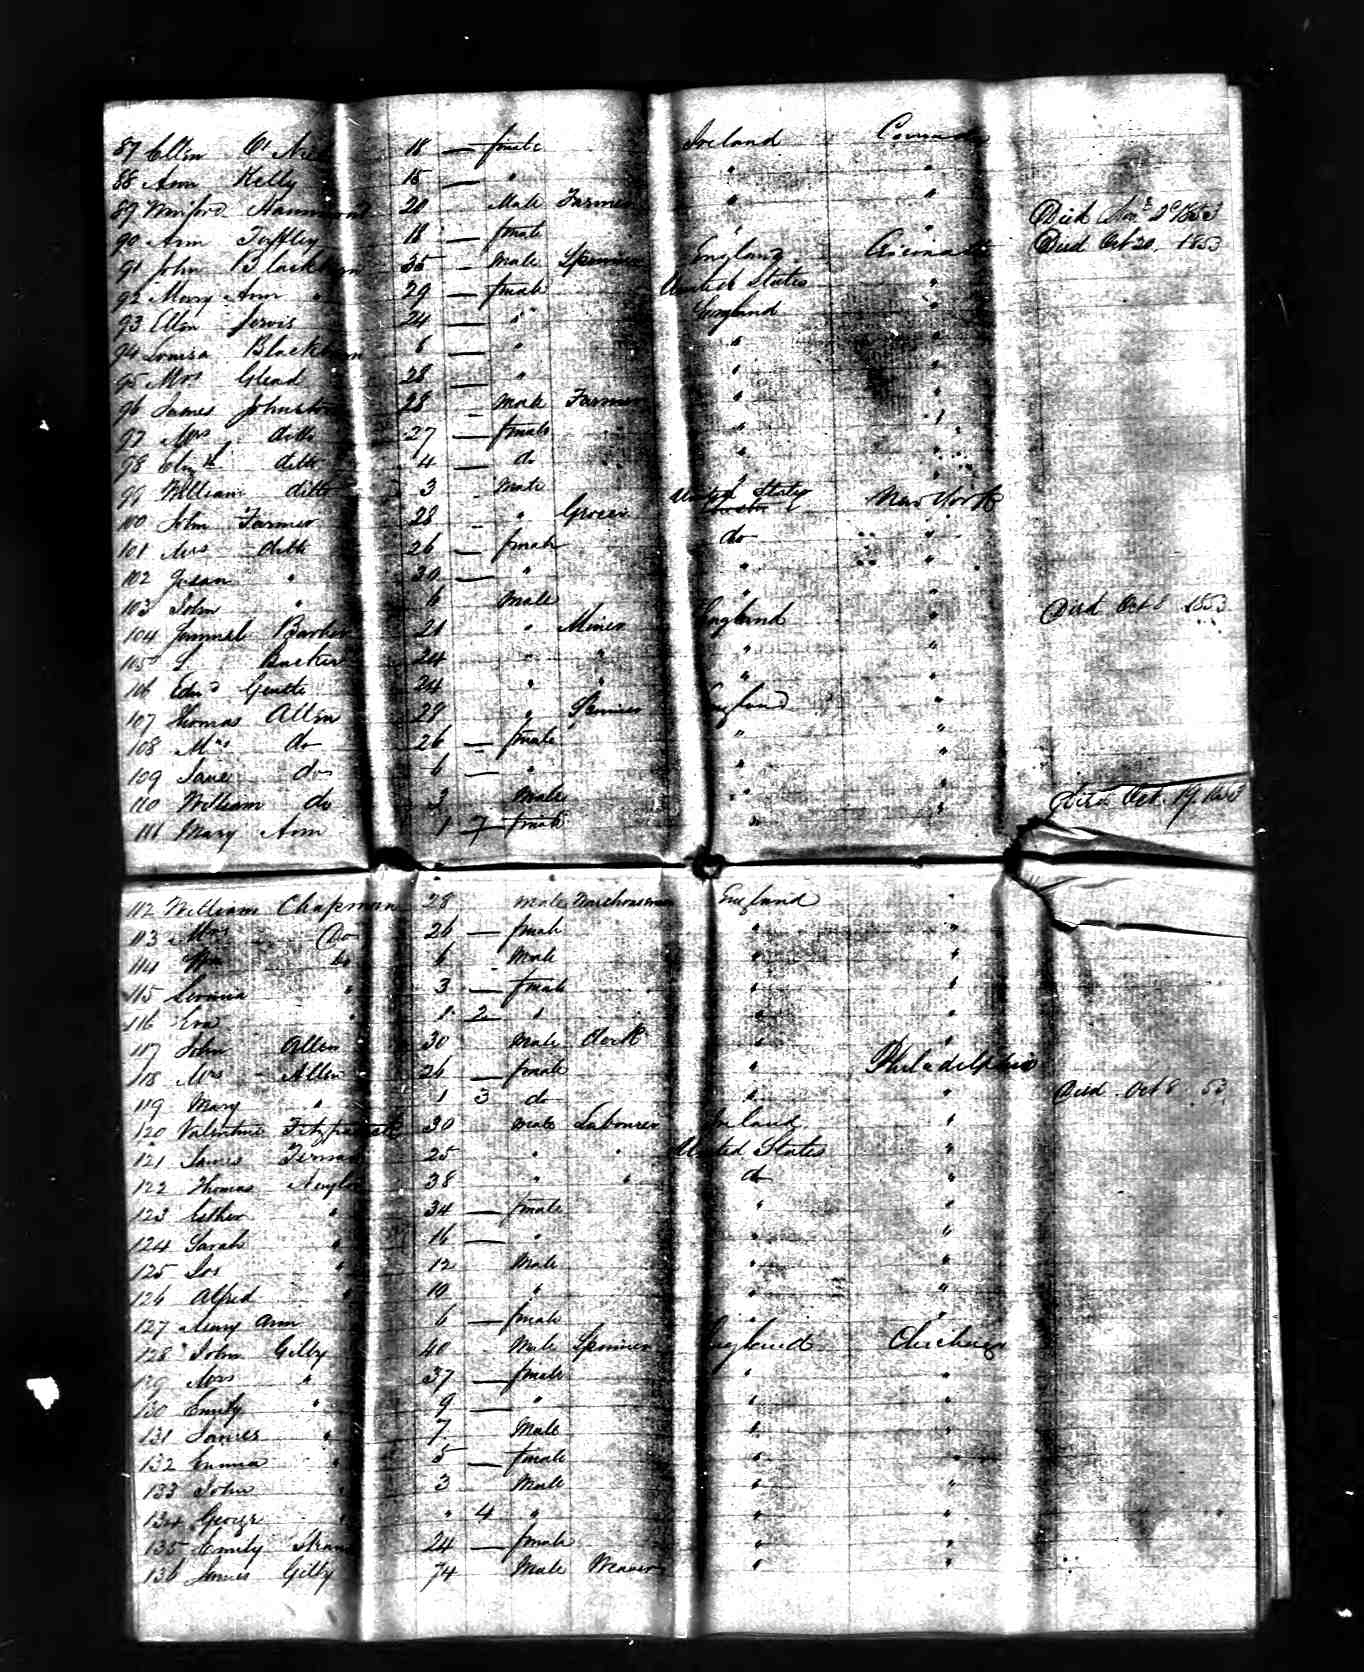 87 Ellin O' 18 — female Ireland Canada
88 Ann Kelly 15 — " " "
89 Winford Hammond 20 Male Farmer " "
90 Ann 18 — female " " Died 1853
91 John Blackburn 35 - Male Spinner England Died Oct 20 1853
92 Mary Ann " 29 — female United States "
93 Ellen Jervis 24 — " England "
94 Louisa Blackburn 8 — " " "
95 Mrs Glead 28 — " " "
96 James Johnston 28 - Male Farmer " "
97 Mrs ditto 27 — female " "
98 ditto 4 — do " "
99 William ditto 3 - Male " "
100 John Farmer 28 - " Grocer United States New York
101 Mrs ditto 26 — female do "
102 " 30 — " " "
103 John " 6 Male " "
104 Barker 21 " Miner England " Died Oct 8 1853
105 S. Barker 24 " " " "
106 Edwd 24 " " " "
107 Thomas Allin 29 " Spinner England "
108 Mrs do 26 — female " "
109 Jane do 6 — " " "
110 William do 3 Male " "
111 Mary Ann 1 7 female " " Died Oct 19 1853
112 William Chapman 28 Male Warehouseman England "
113 Mrs Do 26 — female " "
114 Wm do 6 Male " "
115 " 3 — female " "
116 Eva " 1 2 " " "
117 John Allen 30 Male Clerk " "
118 Mrs - Allen 26 — female " Philadelphia
119 Mary " 1 3 do " " Died Oct 8 53
120 Valentine Fitzpatrick 30 Male Labourer Ireland "
121 James 25 " " United States "
122 Thomas Naylor 38 " " do "
123 Esther " 34 — female " "
124 Sarah " 16 — " " "
125 Jos " 12 Male " "
126 Alfred " 10 " " "
127 Mary Ann 6 — female " "
128 John Gilby 40 Male Spinner England
129 Mrs " 37 — female " "
130 Emily " 9 — " " "
131 James " 7 Male " "
132 Emma " 5 — female " "
133 John " 3 Male " "
134 George " " 4 " " "
135 Emily 24 — female " "
136 James Gilby 74 Male Weaver " "